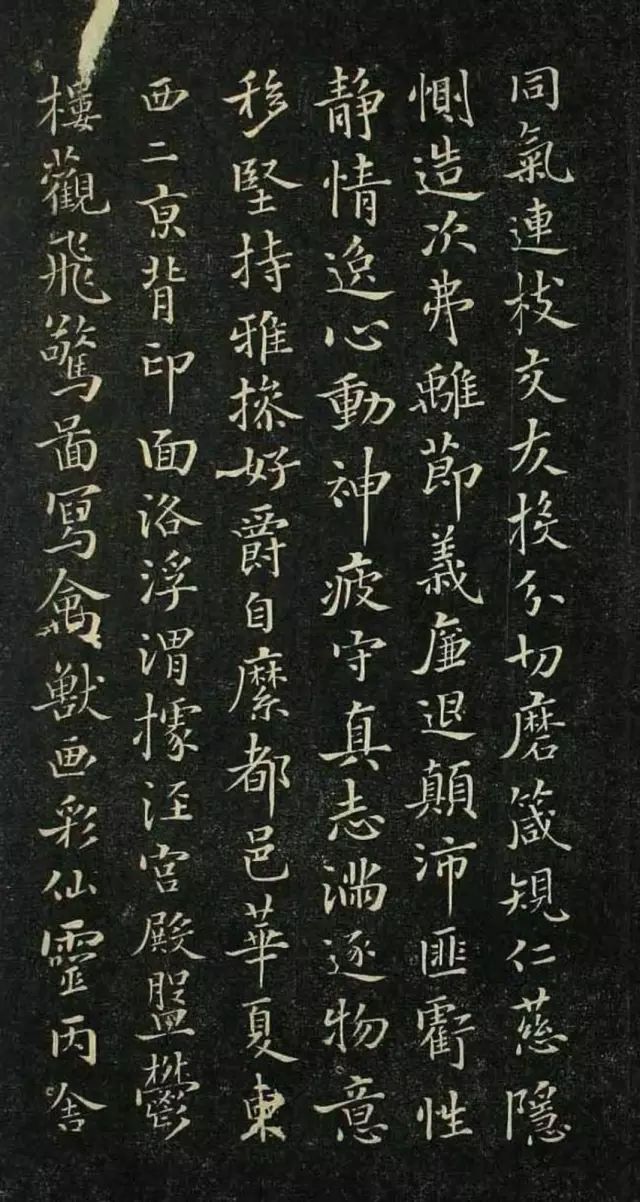 同氣連枝交友投分切磨箴規仁慈隱
惻造次弗離節義廉退顛沛匪虧性
靜情逸心動神疲守真志滿逐物意
移堅持雅操好爵自縻都邑華夏東
西二京背邙面洛浮渭據涇宮殿盤鬱
樓觀飛驚圖寫禽獸画彩仙靈丙舍